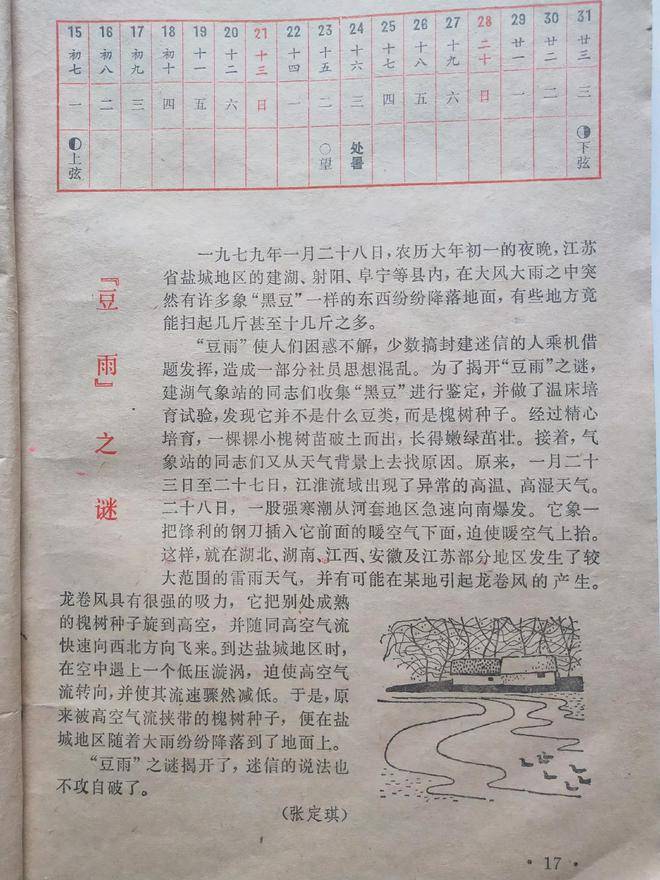 15 16 17 18 19 20 21 22 23 24 25 26 27 28 29 30 31
初七 初八 初九 初十 十一 十二 十三 十四 十五 十六 十七 十八 十九 二十 廿一 廿二 廿三
一 二 三 四 五 六 日 一 二 三 四 五 六 日 一 二 三
上弦 望 处暑 下弦
『豆雨』之谜
一九七九年一月二十八日，农历大年初一的夜晚，江苏
省盐城地区的建湖、射阳、阜宁等县内，在大风大雨之中突
然有许多象“黑豆”一样的东西纷纷降落地面，有些地方竟
能扫起几斤甚至十几斤之多。
“豆雨”使人们困惑不解，少数搞封建迷信的人乘机借
题发挥，造成一部分社员思想混乱。为了揭开“豆雨”之谜，
建湖气象站的同志们收集“黑豆”进行鉴定，并做了温床培
育试验，发现它并不是什么豆类，而是槐树种子。经过精心
培育，一棵棵小槐树苗破土而出，长得嫩绿茁壮。接着，气
象站的同志们又从天气背景上去找原因。原来，一月二十
三日至二十七日，江淮流域出现了异常的高温、高湿天气。
二十八日，一股强寒潮从河套地区急速向南爆发。它象一
把锋利的钢刀插入它前面的暖空气下面，迫使暖空气上抬。
这样，就在湖北、湖南、江西、安徽及江苏部分地区发生了较
大范围的雷雨天气，并有可能在某地引起龙卷风的产生。
龙卷风具有很强的吸力，它把别处成熟
的槐树种子旋到高空，并随同高空气流
快速向西北方向飞来。到达盐城地区时，
在空中遇上一个低压漩涡，迫使高空气
流转向，并使其流速骤然减低。于是，原
来被高空气流挟带的槐树种子，便在盐
城地区随着大雨纷纷降落到了地面上。
“豆雨”之谜揭开了，迷信的说法也
不攻自破了。
（张定琪）
·17·